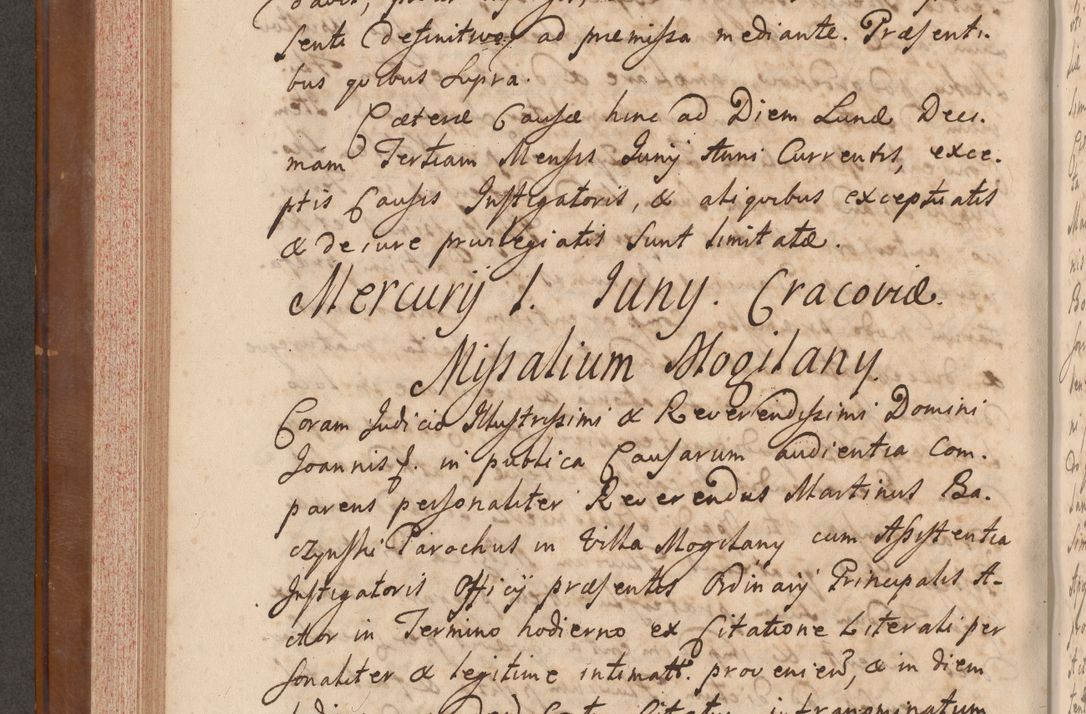 senti definitivoq ad præmissa mediante. Præsenti-
bus quibus supra.
Cæteræ Causæ hinc ad Diem Lunæ Deci-
mam Tertiam Mensis Junij Anni Currentis, exce-
ptis Causis Instigatoris, & aliquibus exceptuatis
& de iure privilegiatis sunt limitatæ.
Mercurij 1. Juny. Cracoviæ.
Missalium Mogilany.
Coram Judicio Illustrissimi & Reverendissimi Domini
Joannis f. in publica Causarum audientia com-
parens personaliter Reverendus Martinus Ba-
czynski Parochus in Villa Mogilany cum Assistentia
Instigatoris Officij præsentis Ordinarij Principalis A-
ctor in Termino hodierno ex Citatione Literali per
sonaliter & legitime intimatt. provenien, & in diem
intranominatum